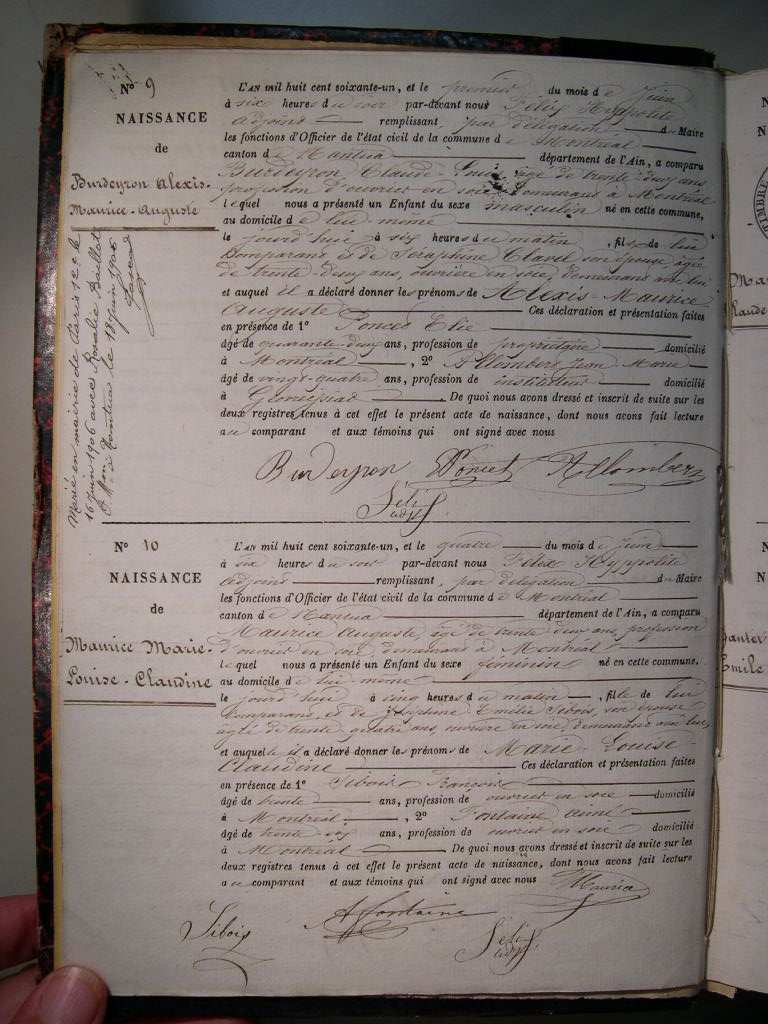 Nº 9
NAISSANCE
de
Burdeyron Alexis-
Maurice-Auguste
Marié en mairie de Paris 12e le
16 juin 1906 avec Rosalie Baillet
le 18 juin 1906
L'AN mil huit cent soixante-un, et le premier du mois de Juin
à six heures du soir par-devant nous Félix Hyppolite
adjoint remplissant par délégation du Maire
les fonctions d'Officier de l'état civil de la commune de Montréal
canton de Nantua département de l'Ain, a comparu
Burdeyron Claude-Louis âgé de trente-deux ans
profession d'ouvrier en soie demeurant à Montréal
lequel nous a présenté un Enfant du sexe masculin né en cette commune,
au domicile de lui même
le jourd'hui à six heures du matin, fils de lui
Comparant et de Séraphine Clavel son épouse âgée
de trente-deux ans, ouvrière en soie, demeurant avec lui
et auquel il a déclaré donner les prénoms de Alexis-Maurice
Auguste Ces déclaration et présentation faites
en présence de 1º Poncet Elie
âgé de quarante-deux ans, profession de propriétaire domicilié
à Montréal, 2º Allombert Jean Marie
âgé de vingt-quatre ans, profession de instituteur domicilié
à De quoi nous avons dressé et inscrit de suite sur les
deux registres tenus à cet effet le présent acte de naissance, dont nous avons fait lecture
au comparant et aux témoins qui ont signé avec nous
Burdeyron Poncet Allombert
Félix
adjt
Nº 10
NAISSANCE
de
Maurice Marie-
Louise-Claudine
L'AN mil huit cent soixante-un, et le quatre du mois de Juin
à six heures du soir par-devant nous Félix Hyppolite
adjoint remplissant, par délégation du Maire
les fonctions d'Officier de l'état civil de la commune de Montréal
canton de Nantua département de l'Ain, a comparu
Maurice Auguste, âgé de trente deux ans, profession
d'ouvrier en soie, demeurant à Montréal
lequel nous a présenté un Enfant du sexe féminin né en cette commune,
au domicile de lui même
le jourd'hui à cinq heures du matin, fille de lui
Comparant et de Emélie Sibois, son épouse
âgée de trente quatre ans, ouvrière en soie, demeurant avec lui,
et auquel il a déclaré donner les prénoms de Marie-Louise-
Claudine Ces déclaration et présentation faites
en présence de 1º Sibois François
âgé de trente ans, profession de ouvrier en soie domicilié
à Montréal, 2º Fontaine Aimé
âgé de trente-six ans, profession de ouvrier en soie domicilié
à Montréal De quoi nous avons dressé et inscrit de suite sur les
deux registres tenus à cet effet le présent acte de naissance, dont nous avons fait lecture
au comparant et aux témoins qui ont signé avec nous Maurice
Sibois A fontaine
Félix
adjt